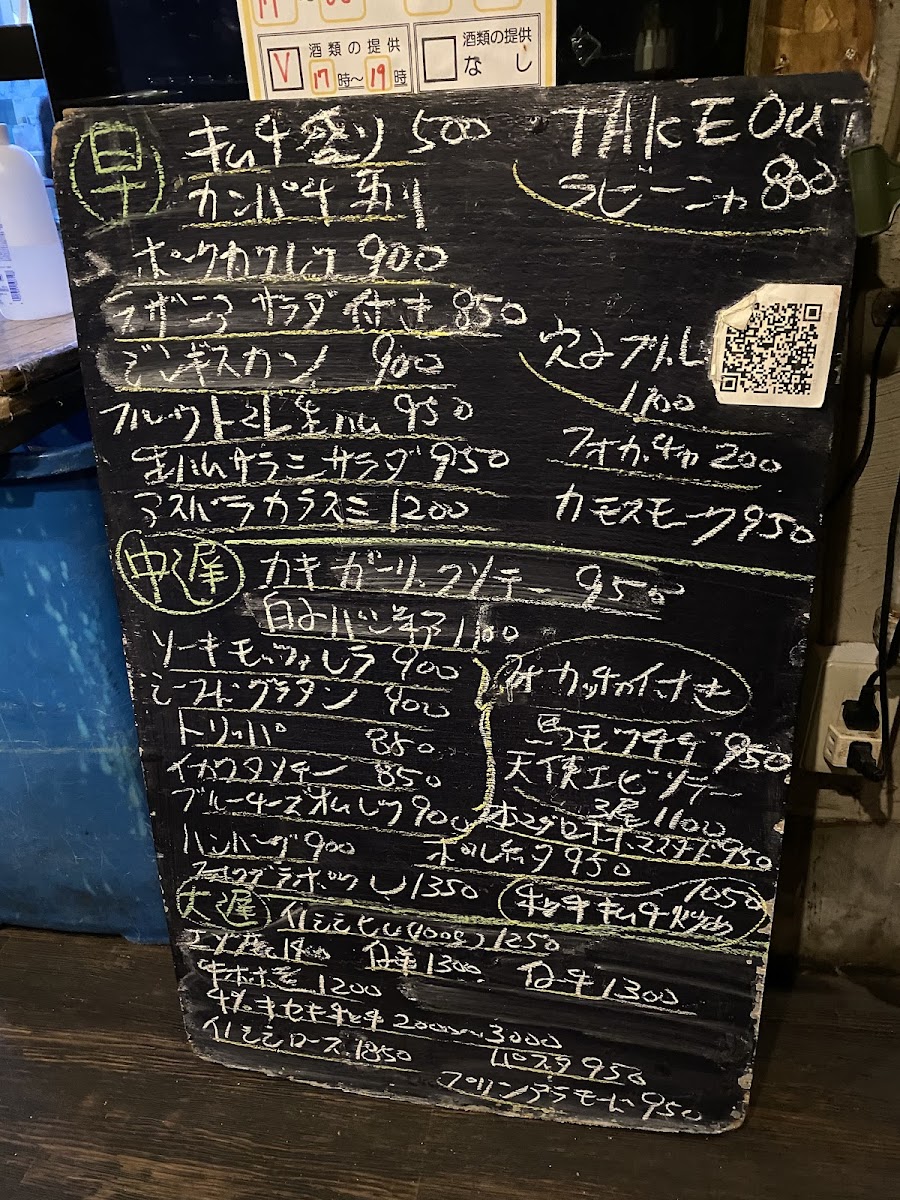 酒類の提供
17時~19時
酒類の提供
なし
早
キムチ盛り 500
カンパチ刺
ポークカツレツ 900
ラザニア サラダ付き 850
ジンギスカン 900
フルーツトマト生ハム 950
生ハムサラミサラダ 950
アスパラカラスミ 1200
TAKE OUT
ラビーニャ 800
穴子フリット
1100
フォカッチャ 200
カモスモーク 950
中遅
カキ ガーリックソテー 950
1100
ソーキモッツァレラ 900
シーフードグラタン 900
トリッパ 850
イカワタソテー 850
ブルーチーズオムレツ 900
ハンバーグ 900
1350
フォカッチャ付き
馬モツサラダ 950
天使エビソテー
3尾 1100
本マグロホホマスタード 950
ポルケッタ 950
1050
キムチ
大遅
イノシシヒレ(100g) 1250
1300
1300
牛ホホ 1200
2000~3000
イノシシロース 1850
パスタ 950
プリンアラモード 950